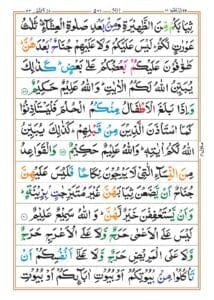 ثِيَابَكُمْ مِّنَ الظَّهِيْرَةِ وَمِنْۢ بَعْدِ صَلٰوةِ الْعِشَآءِ ؕ ثَلٰثُ
عَوْرٰتٍ لَّكُمْ ؕ لَيْسَ عَلَيْكُمْ وَلَا عَلَيْهِمْ جُنَاحٌۢ بَعْدَهُنَّ ؕ
طَوّٰفُوْنَ عَلَيْكُمْ بَعْضُكُمْ عَلٰى بَعْضٍ ؕ كَذٰلِكَ
يُبَيِّنُ اللّٰهُ لَكُمُ الْاٰيٰتِ ؕ وَاللّٰهُ عَلِيْمٌ حَكِيْمٌ ﴿۵۸﴾
وَاِذَا بَلَغَ الْاَطْفَالُ مِنْكُمُ الْحُلُمَ فَلْيَسْتَاْذِنُوْا
كَمَا اسْتَاْذَنَ الَّذِيْنَ مِنْ قَبْلِهِمْ ؕ كَذٰلِكَ يُبَيِّنُ
اللّٰهُ لَكُمْ اٰيٰتِهٖ ؕ وَاللّٰهُ عَلِيْمٌ حَكِيْمٌ ﴿۵۹﴾ وَالْقَوَاعِدُ
مِنَ النِّسَآءِ الّٰتِيْ لَا يَرْجُوْنَ نِكَاحًا فَلَيْسَ عَلَيْهِنَّ
جُنَاحٌ اَنْ يَّضَعْنَ ثِيَابَهُنَّ غَيْرَ مُتَبَرِّجٰتٍۭ بِزِيْنَةٍ ؕ
وَاَنْ يَّسْتَعْفِفْنَ خَيْرٌ لَّهُنَّ ؕ وَاللّٰهُ سَمِيْعٌ عَلِيْمٌ ﴿۶۰﴾
لَيْسَ عَلَى الْاَعْمٰى حَرَجٌ وَّلَا عَلَى الْاَعْرَجِ حَرَجٌ
وَّلَا عَلَى الْمَرِيْضِ حَرَجٌ وَّلَا عَلٰٓى اَنْفُسِكُمْ اَنْ
تَاْكُلُوْا مِنْۢ بُيُوْتِكُمْ اَوْ بُيُوْتِ اٰبَآئِكُمْ اَوْ بُيُوْتِ